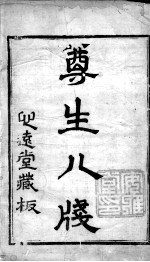 尊生八牋
心遠堂藏板